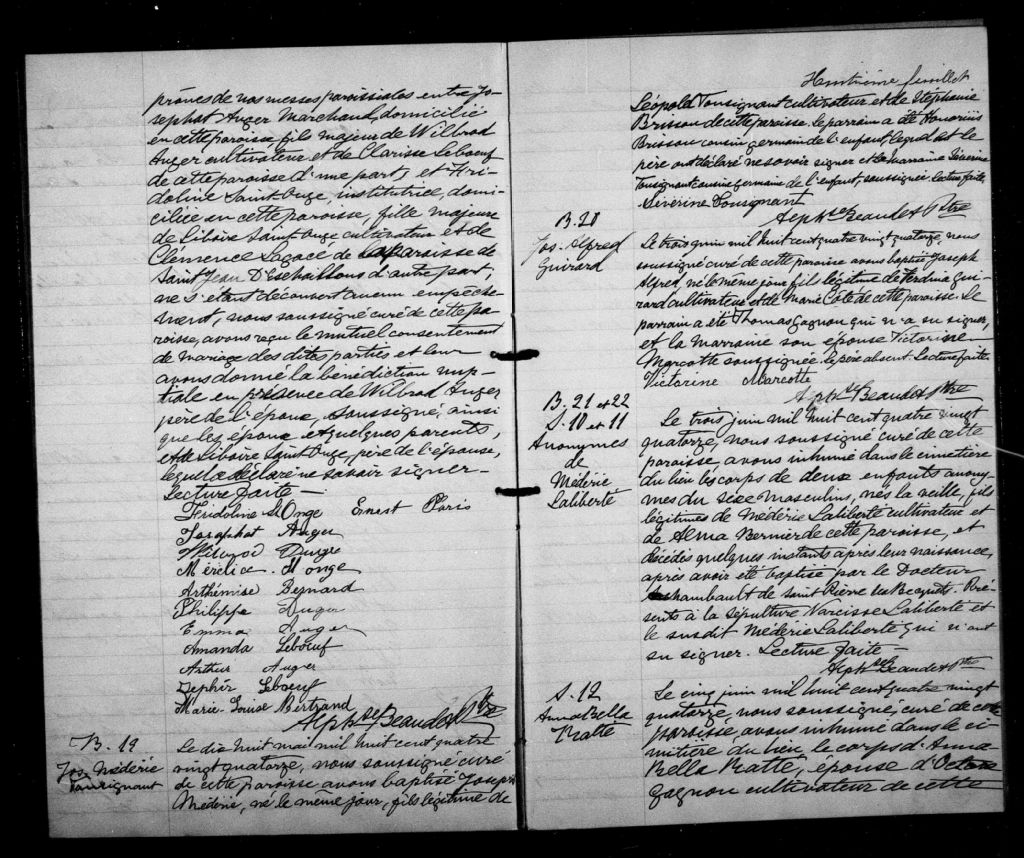 prônes de nos messes paroissiales entre Jo-
sephat Auger Marchand, domicilié
en cette paroisse, fils majeur de Wilbrod
Auger cultivateur et de Clarisse Leboeuf
de cette paroisse d'une part, et Fri-
doline Saint-Onge, institutrice, domi-
ciliée en cette paroisse, fille majeure
de Liboire Saint-Onge cultivateur et de
Clémence Lagacé de la paroisse de
Saint Jean D'Eschaillons d'autre part,
ne s'étant découvert aucun empêche-
ment, nous soussigné curé de cette pa-
roisse, avons reçu le mutuel consentement
de mariage des dites parties et leur
avons donné la bénédiction nup-
tiale en présence de Wilbrod Auger
père de l'époux, soussigné, ainsi
que les époux et quelques parents,
et de Liboire Saint-Onge, père de l'épouse,
lequel a déclaré ne savoir signer -
Lecture faite -
Fridoline St Onge Ernest Paris
Josaphat Auger
Auger
St Onge
Arthémise Bernard
Philippe Auger
Emma Auger
Amanda Leboeuf
Arthur Auger
Zéphir Leboeuf
Marie Louise Bertrand
Alphse Beaudet Ptre
B. 19
Jos. Médérie
Tousignant
Le dix huit mai mil huit cent quatre
vingt quatorze, nous soussigné curé
de cette paroisse avons baptisé Joseph
Médérie, né le même jour, fils légitime de
Huitième feuillet
Léopold Tousignant cultivateur et de Stéphanie
Brisson de cette paroisse. Le parrain a été Honorius
Brisson cousin germain de l'enfant, lequel et le
père ont déclaré ne savoir signer et la marraine Séverine
Tousignant cousine germaine de l'enfant, soussignée. Lecture faite.
Séverine Tousignant
Alphse Beaudet Ptre
B. 20
Jos. Alfred
Guirard
Le trois juin mil huit cent quatre vingt quatorze, nous
soussigné curé de cette paroisse avons baptisé Joseph
Alfred, né le même jour, fils légitime de Gui-
rard cultivateur et de Marie Côté de cette paroisse. Le
parrain a été Thomas Gagnon qui n'a su signer,
et la marraine son épouse Victorine
Marcotte soussignée. Le père absent. Lecture faite
Victorine Marcotte
Alphse Beaudet Ptre
B. 21 et 22
S. 10 et 11
Anonymes
de
Médérie
Laliberté
Le trois juin mil huit cent quatre vingt
quatorze, nous soussigné curé de cette
paroisse, avons inhumé dans le cimetière
du lieu les corps de deux enfants anony-
mes du sexe masculins, nés la veille, fils
légitimes de Médérie Laliberté cultivateur et
de Alma Bernier de cette paroisse, et
décédés quelques instants après leur naissance,
après avoir été baptisé par le Docteur
Archambault de Saint Pierre les Becquets. Pré-
sents à la sépulture Narcisse Laliberté et
le susdit Médérie Laliberté qui n'ont
su signer. Lecture faite -
Alphse Beaudet Ptre
S. 12
Anna Bella
Ratté
Le cinq juin mil huit cent quatre vingt
quatorze, nous soussigné, curé de cette
paroisse avons inhumé dans le ci-
metière du lieu, le corps d'Anna
Bella Ratté, épouse d'Octave
Gagnon cultivateur de cette